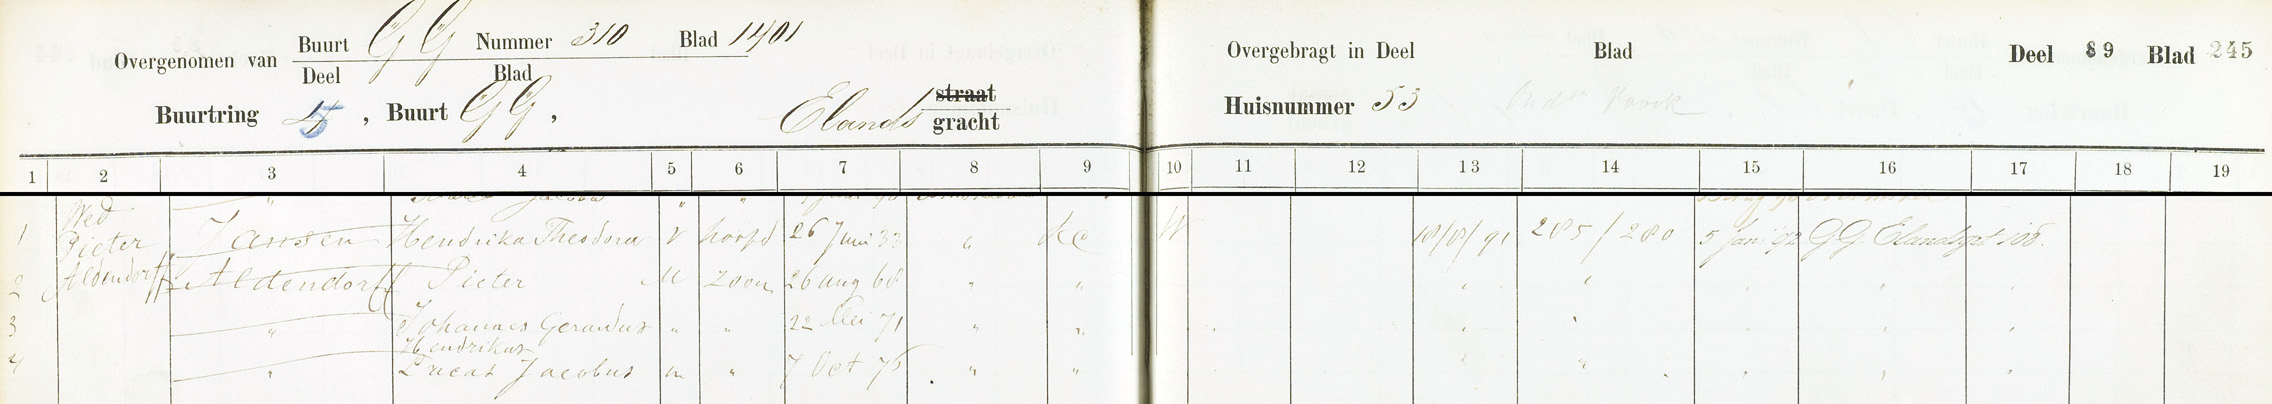 Overgenomen van Buurt GG Nummer 310 Blad 1401
Deel Blad
Buurtring 5, Buurt GG, Elands straat
gracht
Overgebragt in Deel Blad Deel 89 Blad 245
Huisnummer 53
1 2 3 4 5 6 7 8 9 10 11 12 13 14 15 16 17 18 19
Wed
Pieter
Aldendorff
1 Jansen Hendrika Theodora V hoofd 26 Juni 33 " RC W 18/8/91 285/280 5 Jani 92 GG Elandsgrt 108.
2 Aldendorff Pieter M zoon 26 aug 68 " " " " " " "
3 " Johannes Gerardus " " 22 Mei 71 " " " " " " " "
Hendrikus
4 " Lucas Jacobus m " 7 Oct 75 " " " " " " "